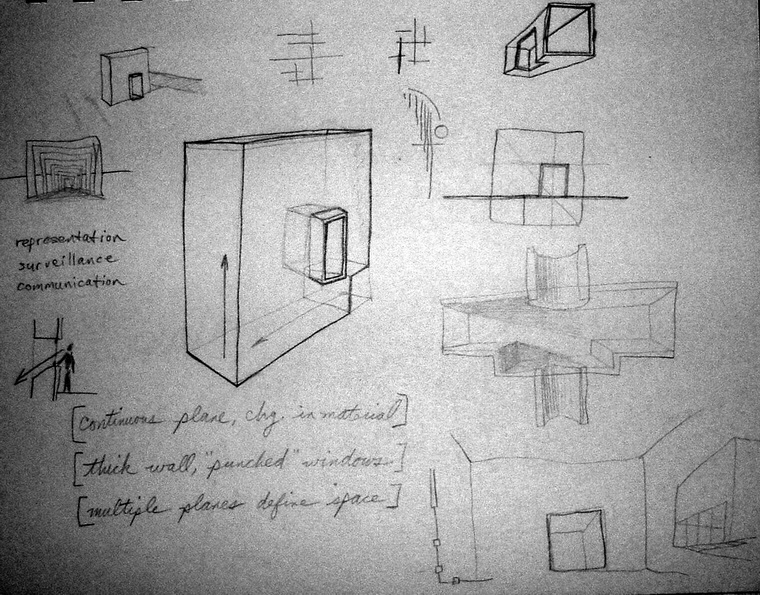 representation
surveillance
communication
[continuous plane, chg. in material]
[thick wall, "punched" windows]
[multiple planes define space]